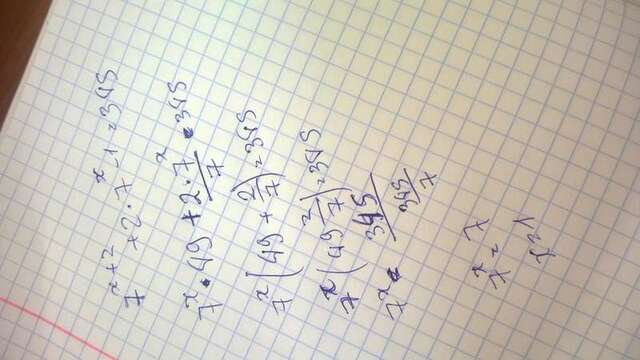 7^{x+2} + 2 · 7^{x-1} = 345
7^x · 49 + \frac{2 · 7^x}{7} = 345
7^x (49 + \frac{2}{7}) = 345
7^x (49 \frac{2}{7}) = 345
7^x = \frac{345}{\frac{345}{7}}
7^x = 7
x = 1